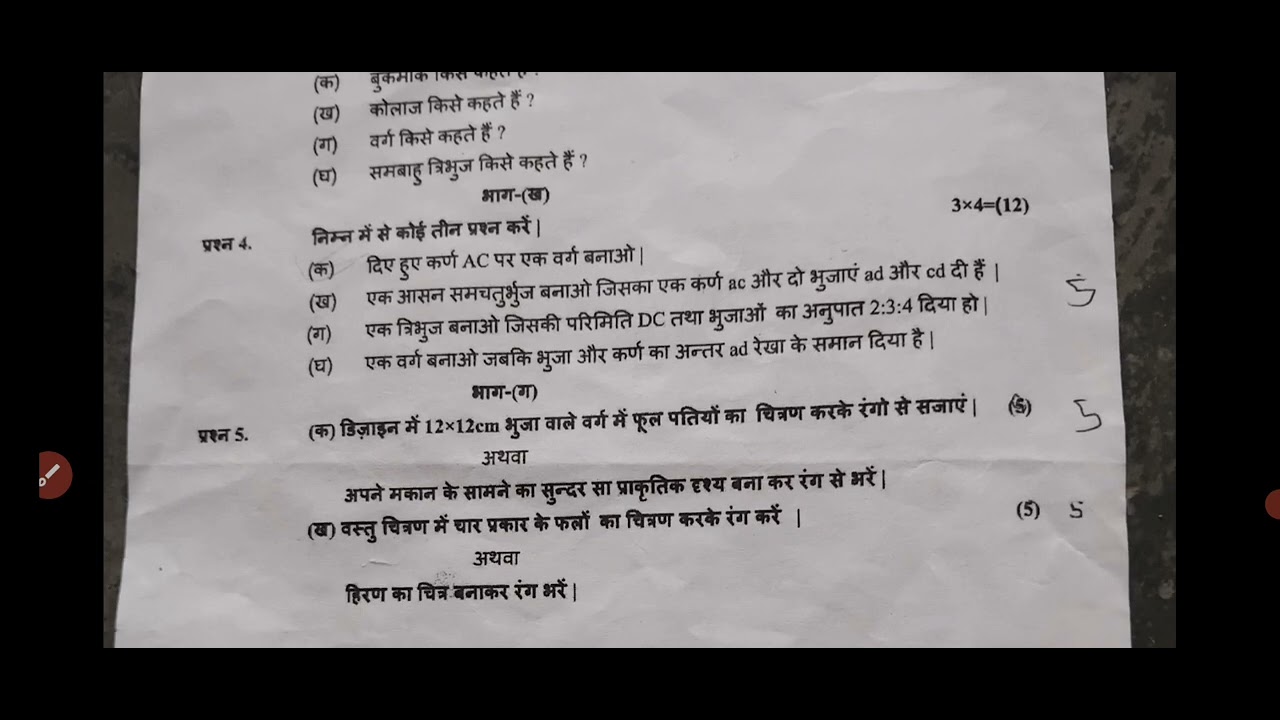 (क) बुकमार्क किसे कहते हैं ?
(ख) कोलाज किसे कहते हैं ?
(ग) वर्ग किसे कहते हैं ?
(घ) समबाहु त्रिभुज किसे कहते हैं ?
भाग-(ख)
3×4=(12)
प्रश्न 4. निम्न में से कोई तीन प्रश्न करें |
(क) दिए हुए कर्ण AC पर एक वर्ग बनाओ |
(ख) एक आसन समचतुर्भुज बनाओ जिसका एक कर्ण ac और दो भुजाएं ad और cd दी हैं |
5
(ग) एक त्रिभुज बनाओ जिसकी परिमिति DC तथा भुजाओं का अनुपात 2:3:4 दिया हो |
(घ) एक वर्ग बनाओ जबकि भुजा और कर्ण का अन्तर ad रेखा के समान दिया है |
भाग-(ग)
प्रश्न 5. (क) डिज़ाइन में 12×12cm भुजा वाले वर्ग में फूल पतियों का चित्रण करके रंगो से सजाएं | (5) 5
अथवा
अपने मकान के सामने का सुन्दर सा प्राकृतिक दृश्य बना कर रंग से भरें |
(ख) वस्तु चित्रण में चार प्रकार के फलों का चित्रण करके रंग करें | (5) 5
अथवा
हिरण का चित्र बनाकर रंग भरें |